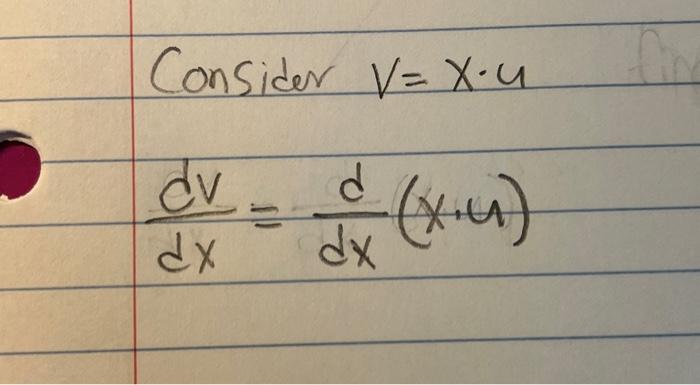 Consider V = x·u
dv/dx = d/dx (x·u)